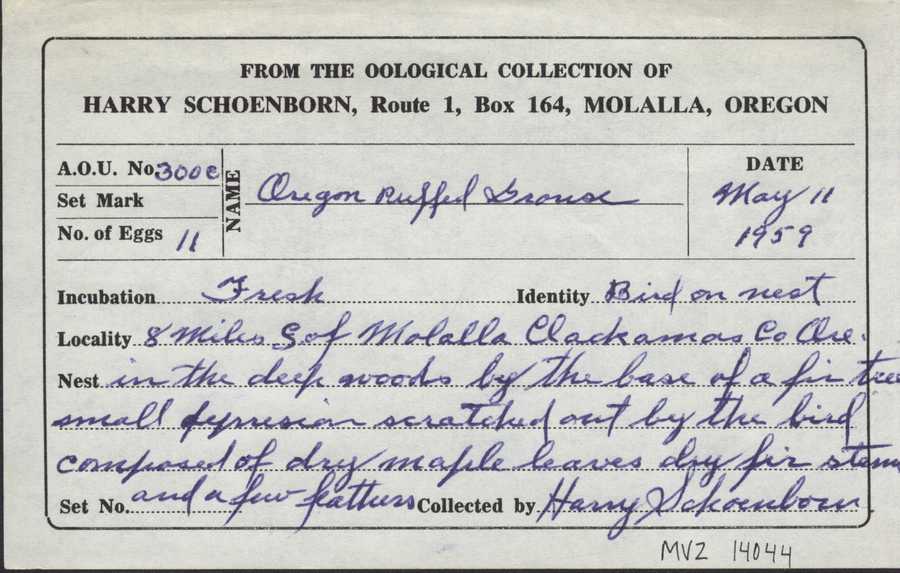 FROM THE OOLOGICAL COLLECTION OF
HARRY SCHOENBORN, Route 1, Box 164, MOLALLA, OREGON
A.O.U. No. 300c
Set Mark
No. of Eggs 11
NAME Oregon Ruffed Grouse
DATE
May 11
1959
Incubation Fresh Identity Bird on nest
Locality 8 Miles S of Molalla Clackamas Co Ore.
Nest in the deep woods by the base of a fir tree
small depression scratched out by the bird
composed of dry maple leaves dry fir stems
Set No. and a few feathers Collected by Harry Schoenborn
MVZ 14044